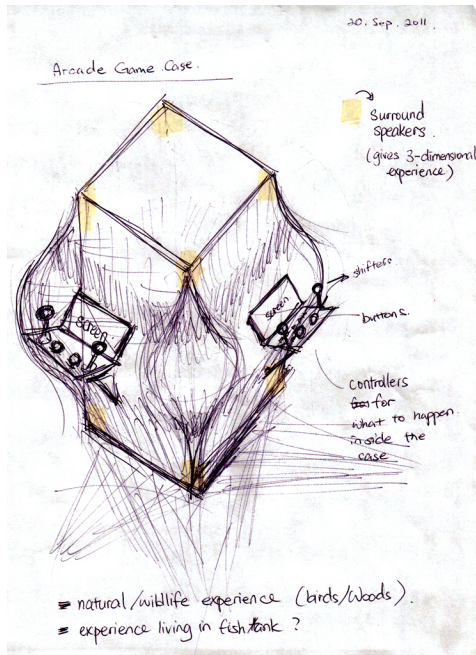 20. Sep. 2011.
Arcade Game Case.
Surround
speakers.
(gives 3-dimensional
experience)
shifters
screen
screen
buttons.
controllers
for
what to happen
inside the
case
natural/wildlife experience (birds/woods).
experience living in fish tank ?